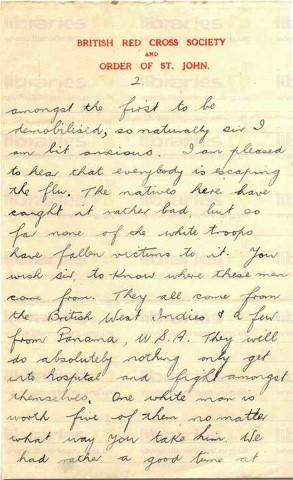 BRITISH RED CROSS SOCIETY
AND
ORDER OF ST. JOHN.
2.
amongst the first to be
demobilised, so naturally sir I
am bit anxious. I am pleased
to hear that everybody is escaping
the flu. The natives here have
caught it rather bad, but so
far none of the white troops
have fallen victims to it. You
wish sir, to know where these men
come from. They all come from
the British West Indies & a few
from Panama, U.S.A. They will
do absolutely nothing only get
into hospital and fight amongst
themselves. One white man is
worth five of them no matter
what way you take him. We
had rather a good time at